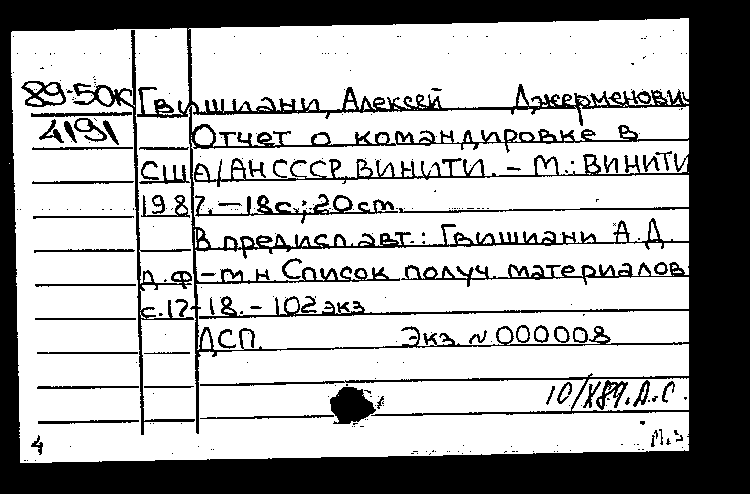 89-50к Гвишиани, Алексей Джерменович
4191 Отчет о командировке в
США/АН СССР, ВИНИТИ. – М.: ВИНИТИ
1987. – 18с.; 20 cm.
В предисл. авт.: Гвишиани А. Д.
д. ф-м н Список получ. материалов
с. 17-18. – 102 экз
ДСП. Экз N 000008
10/X89. А.С.
4